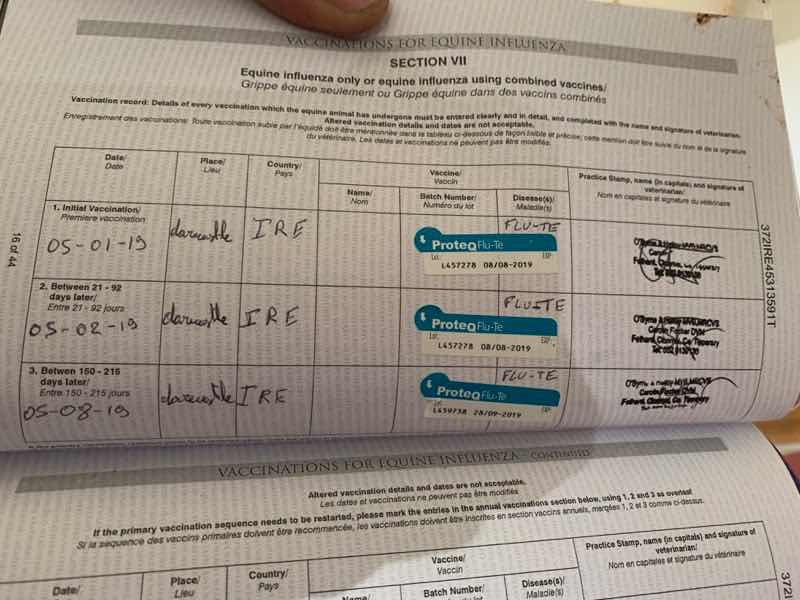 VACCINATIONS FOR EQUINE INFLUENZA
SECTION VII
Equine influenza only or equine influenza using combined vaccines/
Grippe équine seulement ou Grippe équine dans des vaccins combinés
Vaccination record: Details of every vaccination which the equine animal has undergone must be entered clearly and in detail, and completed with the name and signature of veterinarian.
Altered vaccination details and dates are not acceptable.
Enregistrement des vaccinations: Toute vaccination subie par l'équidé doit être mentionnée dans le tableau ci-dessous de façon lisible et précise, cette mention doit être suivie du nom et de la signature
du vétérinaire. Les dates et vaccinations ne peuvent pas être modifés.
Date/
Date
Place/
Lieu
Country/
Pays
Vaccine/
Vaccin
Name/
Nom
Batch Number/
Numéro du lot
Disease(s)/
Maladie(s)
Practice Stamp, name (in capitals) and signature of
veterinarian/
Nom en capitales et signature du vétérinaire
1. Initial Vaccination/
Premiere vaccination
05-01-19
IRE
FLU-TE
ProteqFlu-Te
Lot
EXP
L457278 08/08-2019
Fethard, Clonmel, Co. Tipperary
2. Between 21 - 92
days later/
Entre 21 - 92 jours
05-02-19
IRE
FLUITE
ProteqFlu-Te
Lot
EXP
L457278 08/08-2019
Fethard, Clonmel, Co. Tipperary
3. Betwen 150 - 215
days later/
Entre 150 - 215 jours
05-08-19
IRE
FLU-TE
ProteqFlu-Te
Lot
EXP
L459738 28/09-2019
Fethard, Clonmel, Co. Tipperary
16 of 44
372IRE45313591T
VACCINATIONS FOR EQUINE INFLUENZA - CONTINUED
Altered vaccination details and dates are not acceptable.
Les dates et vaccinations ne peuvent pas être modifés
If the primary vaccination sequence needs to be restarted, please mark the entries in the annual vaccinations section below, using 1, 2 and 3 as overleaf
Si la séquence des vaccins primaires doivent être recommencée, les vaccinations doivent être inscrites en section vaccins annuels, marqées 1, 2 et 3 comme ci-dessus.
Date/
Place/
Lieu
Country/
Pays
Vaccine/
Vaccin
Name/
Batch Number/
Numéro du lot
Disease(s)/
Maladie(s)
Practice Stamp, name (in capitals) and signature of
veterinarian/
Nom en capitales et signature du vétérinaire
372I